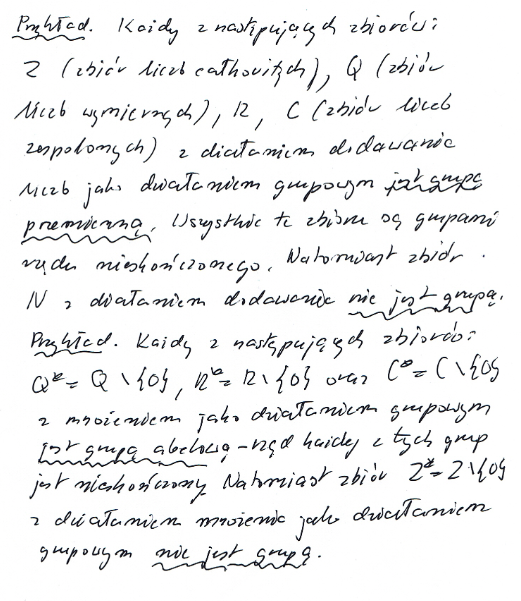 Przykład. Każdy z następujących zbiorów:
Z (zbiór liczb całkowitych), Q (zbiór
liczb wymiernych), R, C (zbiór liczb
zespolonych) z działaniem dodawania
liczb jako działaniem grupowym jest grupą
przemienną. Wszystkie te zbiory są grupami
rzędu nieskończonego. Natomiast zbiór
N z działaniem dodawania nie jest grupą.
Przykład. Każdy z następujących zbiorów:
Q* = Q \ {0}, R* = R \ {0} oraz C* = C \ {0}
z mnożeniem jako działaniem grupowym
jest grupą abelową – rząd każdej z tych grup
jest nieskończony. Natomiast zbiór Z* = Z \ {0}
z działaniem mnożenia jako działaniem
grupowym nie jest grupą.